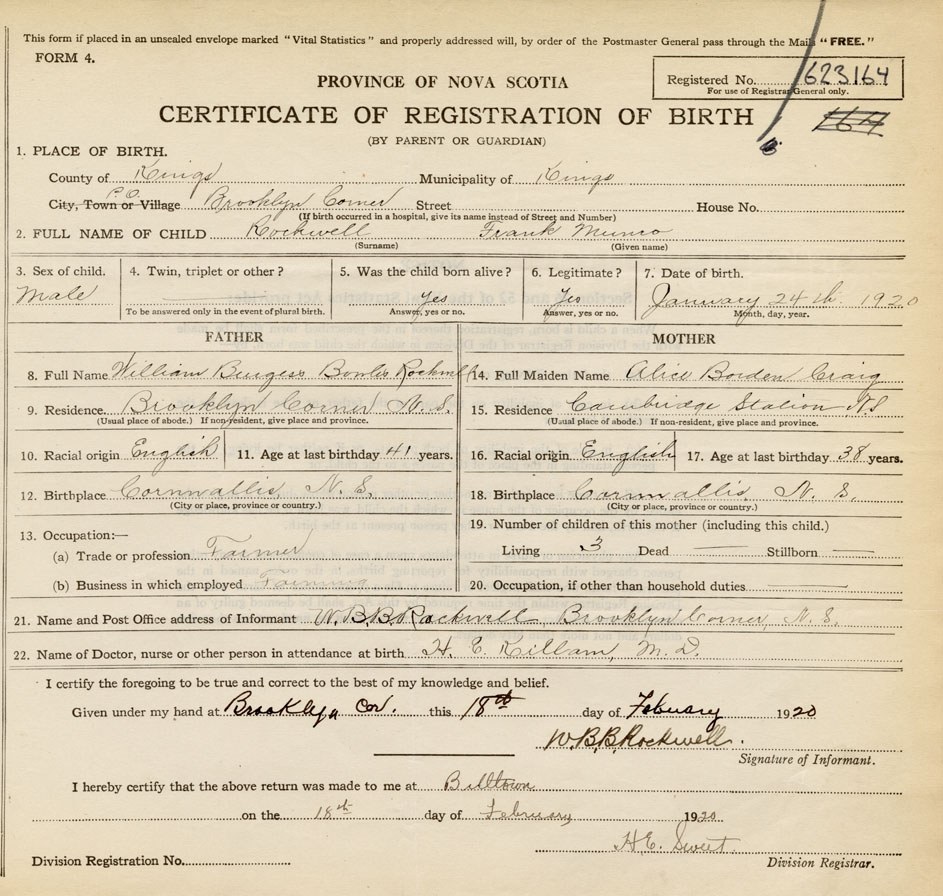 This form if placed in an unsealed envelope marked "Vital Statistics" and properly addressed will, by order of the Postmaster General pass through the Mails "FREE."
FORM 4.
Registered No. 623164
For use of Registrar General only.
164
PROVINCE OF NOVA SCOTIA
CERTIFICATE OF REGISTRATION OF BIRTH
(BY PARENT OR GUARDIAN)
1. PLACE OF BIRTH.
County of Kings Municipality of Kings
P.O.
City, Town or Village Brooklyn Corner Street House No.
(If birth occurred in a hospital, give its name instead of Street and Number)
2. FULL NAME OF CHILD Rockwell Frank Munro
(Surname) (Given name)
3. Sex of child. 4. Twin, triplet or other? 5. Was the child born alive? 6. Legitimate? 7. Date of birth.
Male Yes Yes January 24th. 1920
To be answered only in the event of plural birth. Answer, yes or no. Answer, yes or no. Month, day, year.
FATHER MOTHER
8. Full Name William Burgess Bowles Rockwell 14. Full Maiden Name Alice Borden Craig
9. Residence. Brooklyn Corner N.S. 15. Residence Cambridge Station NS
(Usual place of abode.) If non-resident, give place and province. (Usual place of abode.) If non-resident, give place and province.
10. Racial origin English 11. Age at last birthday 41 years. 16. Racial origin English 17. Age at last birthday 38 years.
12. Birthplace Cornwallis, N. S. 18. Birthplace Cornwallis, N. S.
(City or place, province or country.) (City or place, province or country.)
13. Occupation:— 19. Number of children of this mother (including this child.)
(a) Trade or profession Farmer Living 3 Dead — Stillborn —
(b) Business in which employed Farming 20. Occupation, if other than household duties
21. Name and Post Office address of Informant W. B. B. Rockwell Brooklyn Corner, N. S.
22. Name of Doctor, nurse or other person in attendance at birth H. E. Killam, M. D.
I certify the foregoing to be true and correct to the best of my knowledge and belief.
Given under my hand at Brooklyn Cor. this 18th day of February 1920
W.B.B.Rockwell.
Signature of Informant.
I hereby certify that the above return was made to me at Billtown
on the 18th day of February 1920
H.E. Sweet
Division Registration No. Division Registrar.